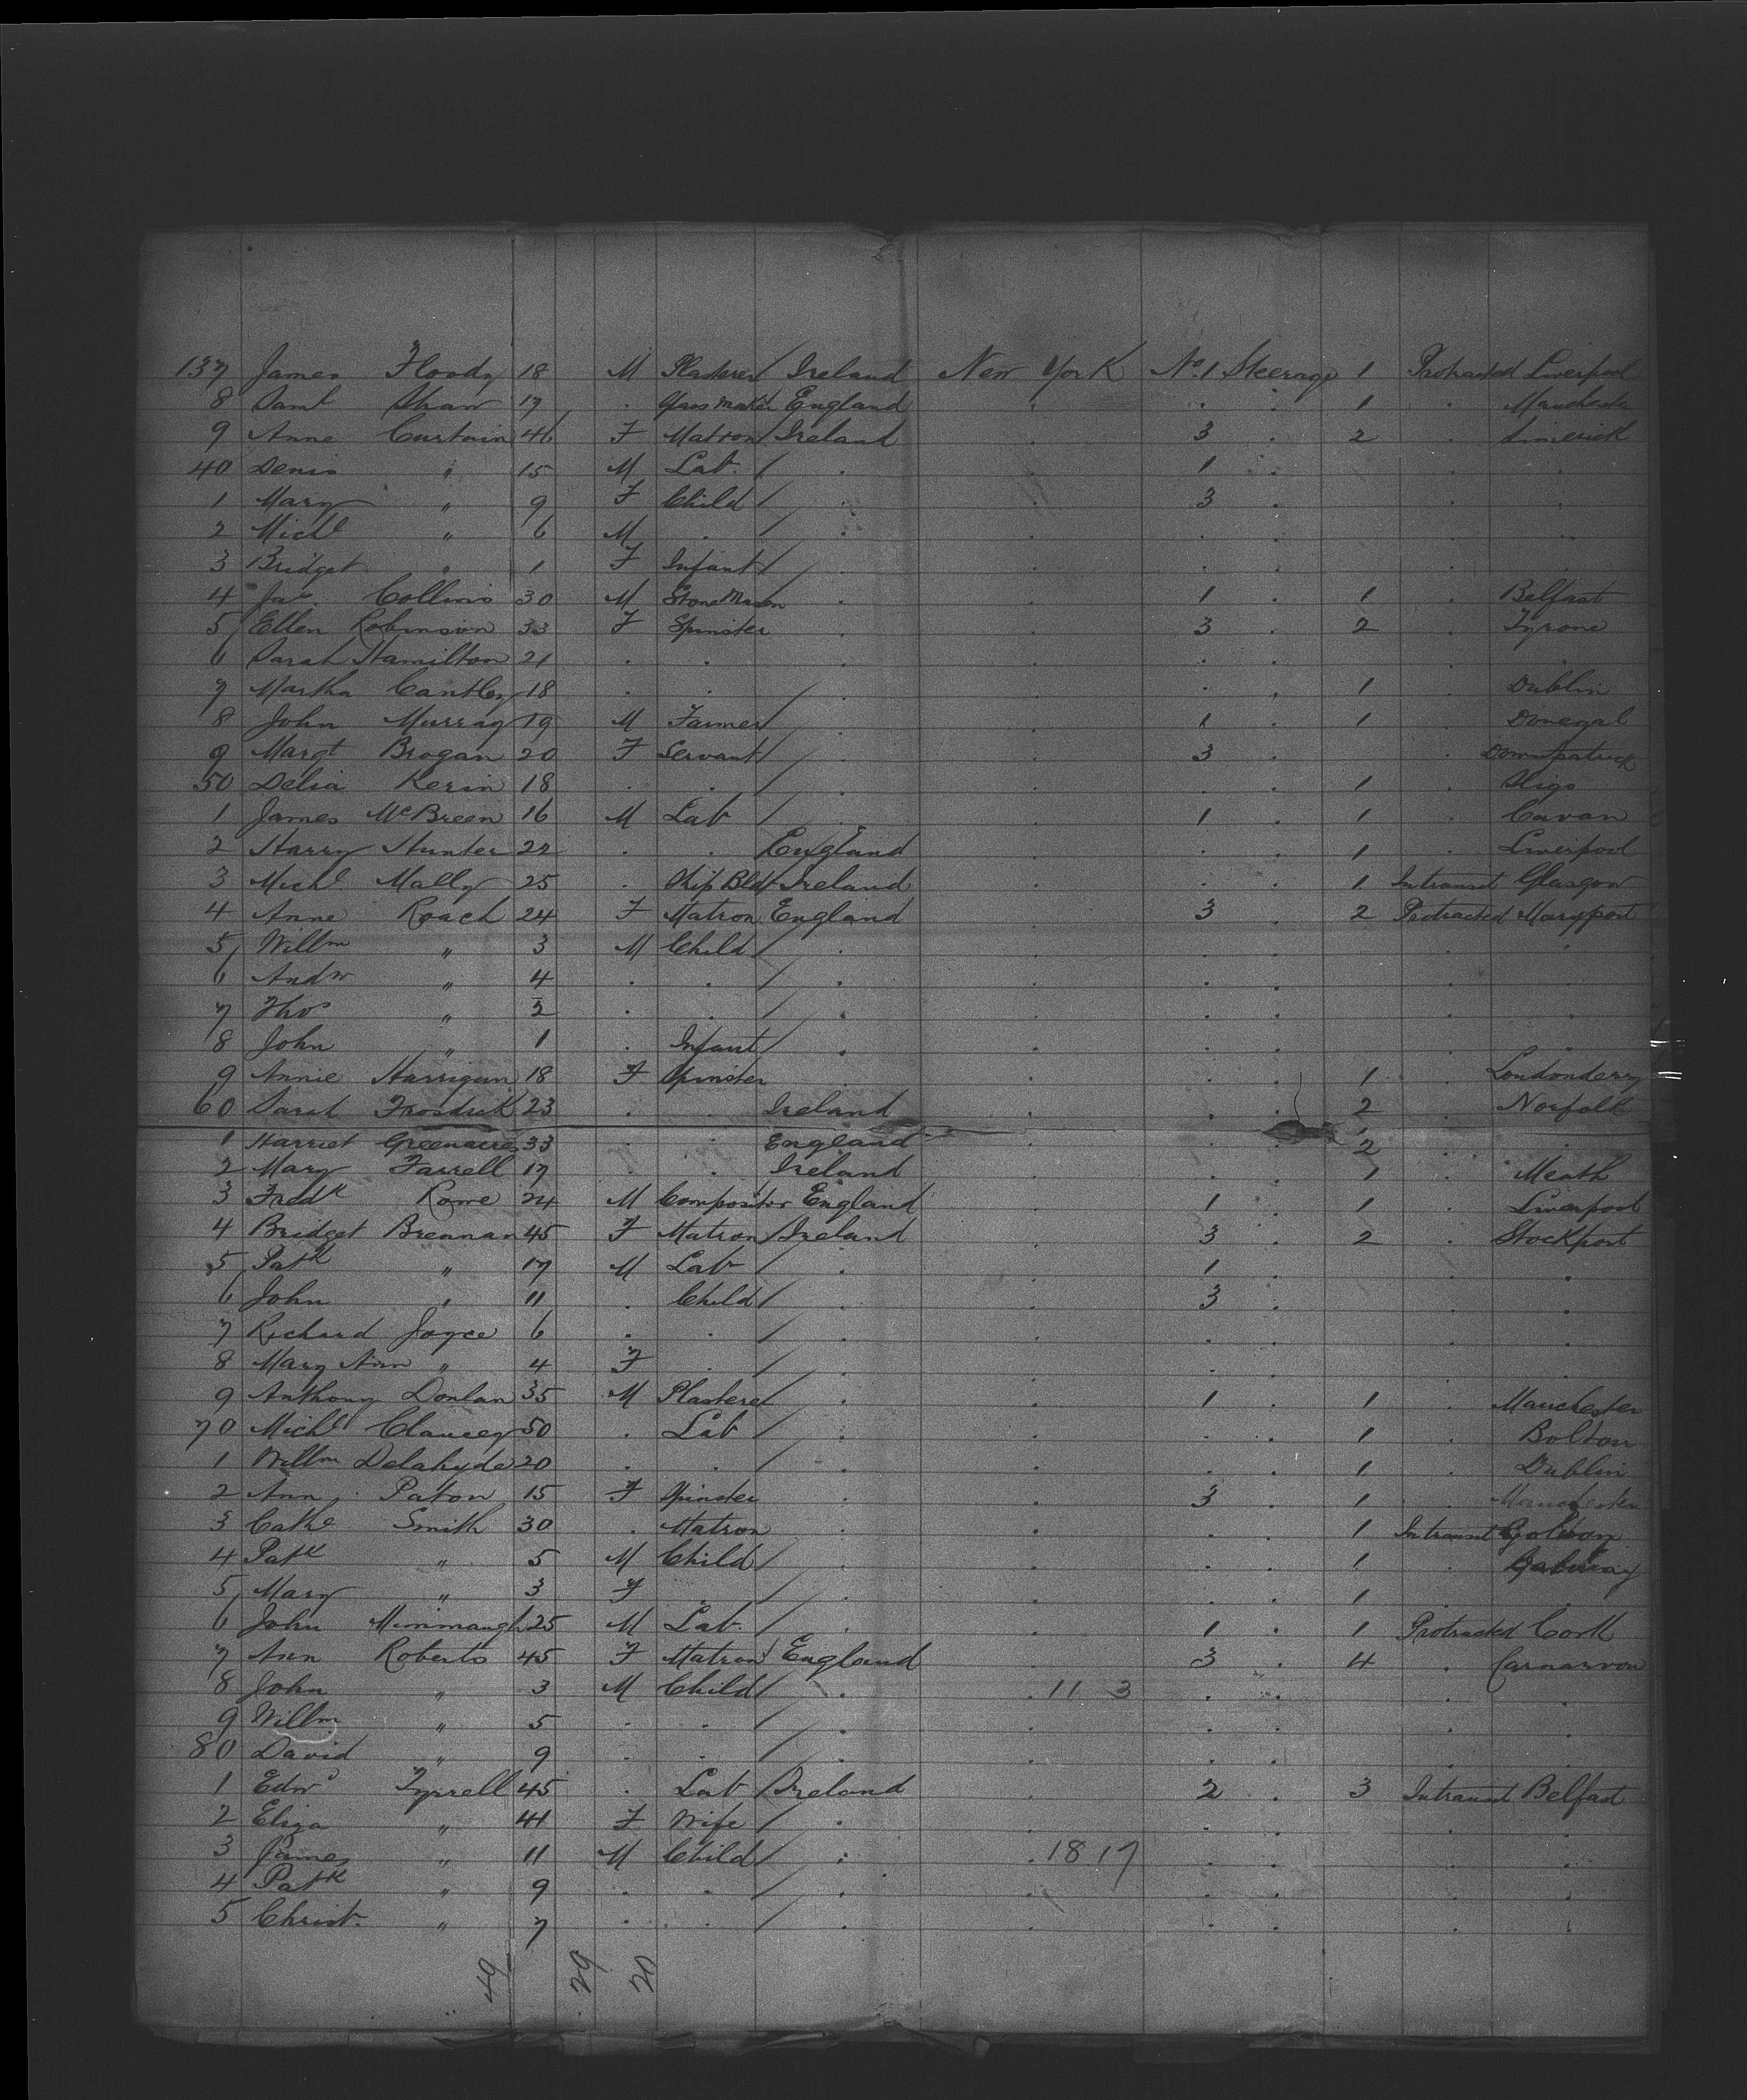 137 James Floody 18 M Plasterer / Ireland New York No. 1 Steerage 1 Protracted Liverpool
8 Saml Shaw 17 . Glass Maker England . . . 1 . Manchester
9 Anne Curtain 46 F Matron / Ireland . 3 . 2 . Limerick
40 Denis " 15 M Lab. / . . 1 . . .
1 Mary " 9 F Child / . . 3 . . .
2 Michl " 6 M . / . . . . . .
3 Bridget " 1 F Infant / . . . . . .
4 Jas. Collins 30 M Stone Mason . . 1 . 1 . Belfast
5 Ellen Robinson 33 F Spinster . . 3 . 2 . Tyrone
6 Sarah Hamilton 21 . . . . . . . .
7 Martha Cantley 18 . . / . . . . 1 . Dublin
8 John Murray 19 M Farmer / . . 1 . 1 . Donegal
9 Margt Brogan 20 F Servant / . . 3 . . Downpatrick
50 Delia Kerin 18 . . / . . . . 1 . Sligo
1 James McBreen 16 M Lab / . . 1 . 1 . Cavan
2 Harry Hunter 22 . . England . . . 1 . Liverpool
3 Michl Mally 25 . Ship Bldr Ireland . . . 1 Intransit Glasgow
4 Anne Roach 24 F Matron England . 3 . 2 Protracted Maryport
5 Willm " 3 M Child / . . . . . .
6 Andw " 4 . . / . . . . . .
7 Thos " 2 . . / . . . . . .
8 John " 1 . Infant / . . . . . .
9 Annie Harrigan 18 F Spinster . . . . 1 . Londonderry
60 Sarah Frosdick 23 . . Ireland . . . 2 . Norfolk
1 Harriet Greenacre 33 . . England . . . 2 . .
2 Mary Farrell 17 . . Ireland . . . 1 . Meath
3 Fredk Rome 24 M Compositor England . 1 . 1 . Liverpool
4 Bridget Brennan 45 F Matron / Ireland . 3 . 2 . Stockport
5 Patk " 17 M Lab / . 1 . .
6 John " 11 . Child / . 3 . .
7 Richard Joyce 6 . . / . . . . .
8 Mary Ann " 4 F . / . . . .
9 Anthony Donlan 35 M Plasterer / . . 1 . 1 . Manchester
70 Michl Clancey 50 . Lab / . . . . 1 . Bolton
1 Willm Delahyde 20 . . / . . . . 1 . Dublin
2 Ann Paton 15 F Spinster . . 3 . 1 . Manchester
3 Cathe Smith 30 . Matron . . . . 1 Intransit
4 Patk " 5 M Child / . . . . 1 . Galway
5 Mary " 3 F . / . . . . 1 .
6 John Mimmaugh 25 M Lab. / . . 1 . 1 Protracted Cork
7 Ann Roberts 45 F Matron / England . 3 . 4 . Carnarvon
8 John " 3 M Child / . . 11 3 . . . .
9 Willm " 5 . . / . . . . . .
80 David " 9 . . / . . . . . .
1 Edwd Tyrrell 45 . Lab / Ireland . 2 . 3 Intransit Belfast
2 Eliza " 41 F Wife / . . . . . .
3 James " 11 M Child / . . 18 17 . . . .
4 Patk " 9 . . / . . . . . .
5 Christ. " 7 . . / . . . . . .
49 29 20